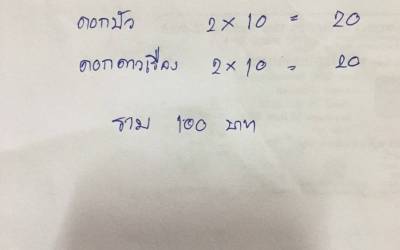 ดอกบัว 2 × 10 = 20
ดอกดาวเรือง 2 × 10 = 20
รวม 100 บาท